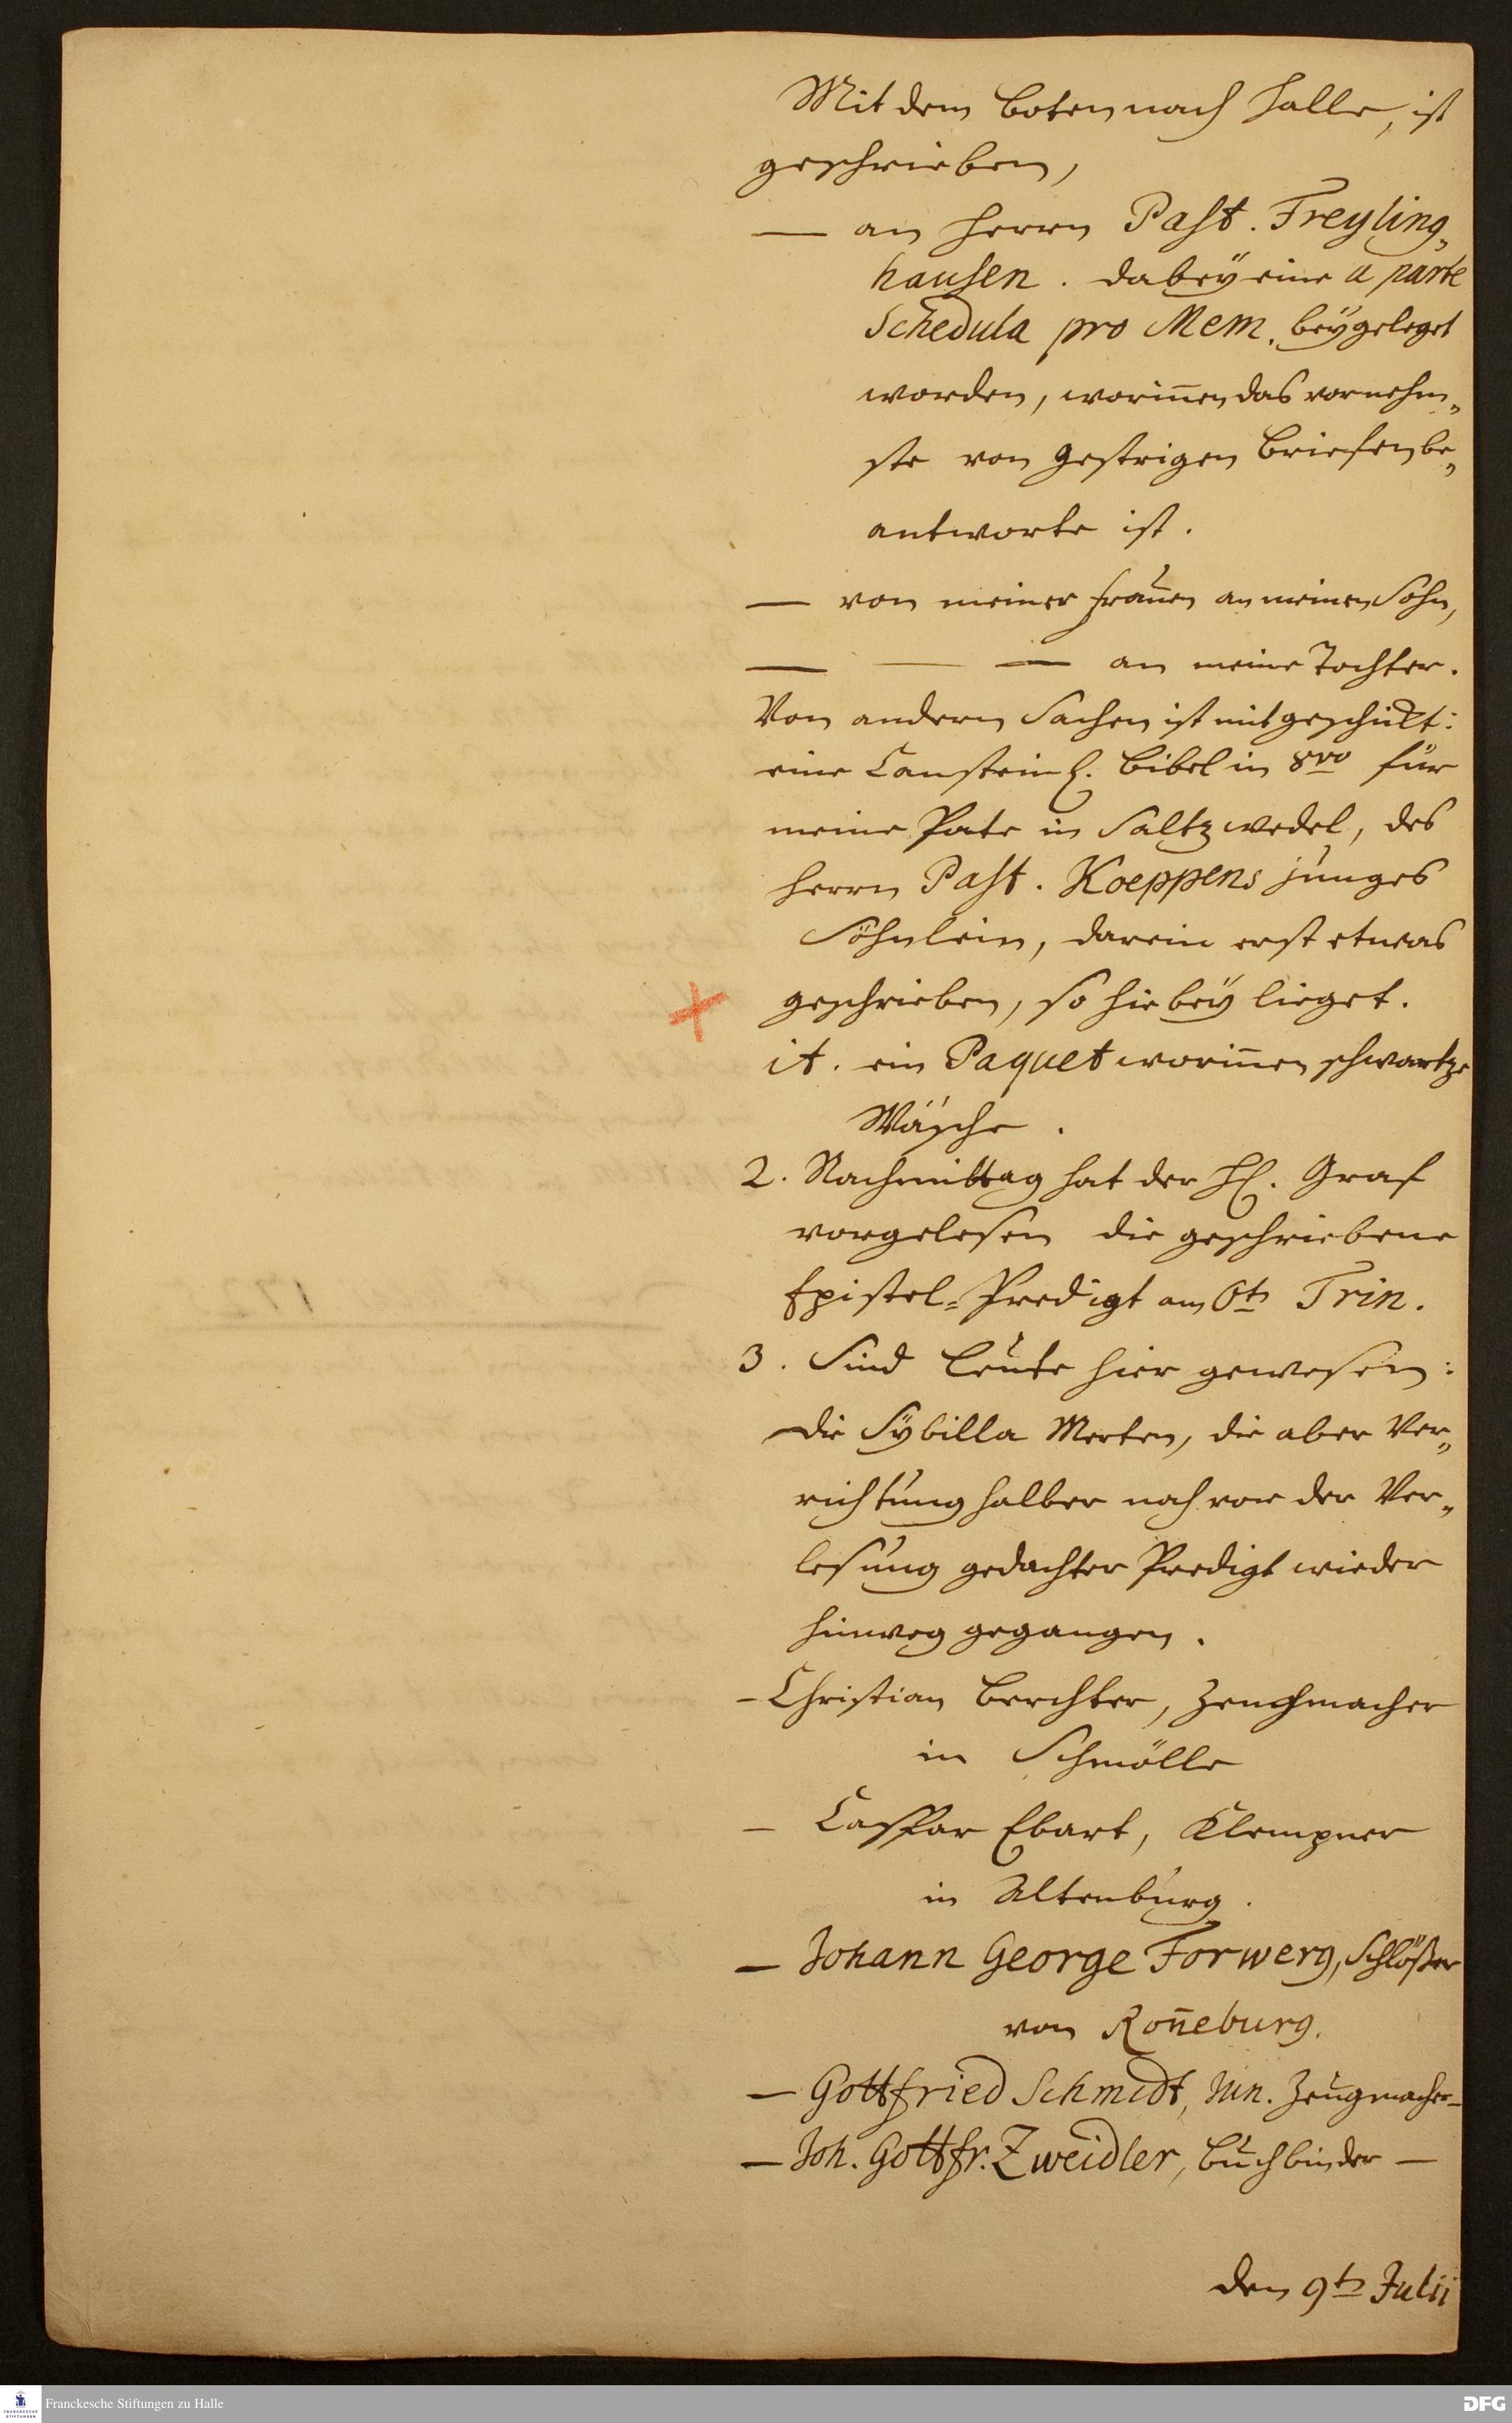 Mit dem Boten nach Halle, ist
geschrieben,
— an Herrn Past. Freyling„
hausen. dabeÿ eine a parte
Schedula pro Mem. beÿgeleget
worden, woriñen das vornehm„
ste von gestrigen Briefen be„
antworte ist.
— von meiner Frauen an meinen Sohn,
— — — an meine Tochter.
Von andern Sachen ist mit geschickt:
eine Cansteinl. Bibel in 8vo für
meine Pate in Saltzwedel, des
Herrn Past. Koeppens junges
Söhnlein, darein erst etwas
geschrieben, so hiebeÿ lieget.
it. ein Paquet woriñen schwartze
Wäsche.
2. Nachmittag hat der H. Graf
vorgelesen die geschriebene
Epistel-Predigt am 6tn Trin.
3. Sind Leute hier gewesen:
die Sÿbilla Merten, die aber Ver„
richtung halber noch vor der Ver„
lesung gedachter Predigt wieder
hinweg gegangen.
– Christian Berchter, Zeuchmacher
in Schmölle
– Caspar Ebart, Klempner
in Altenburg.
– Johann George Forwerg, Schlößer
von Roñeburg.
– Gottfried Schmidt, Jun. Zeugmacher –
– Joh. Gottfr. Zweidler, Buchbinder –
den 9tn Julii
Franckesche Stiftungen zu Halle
DFG